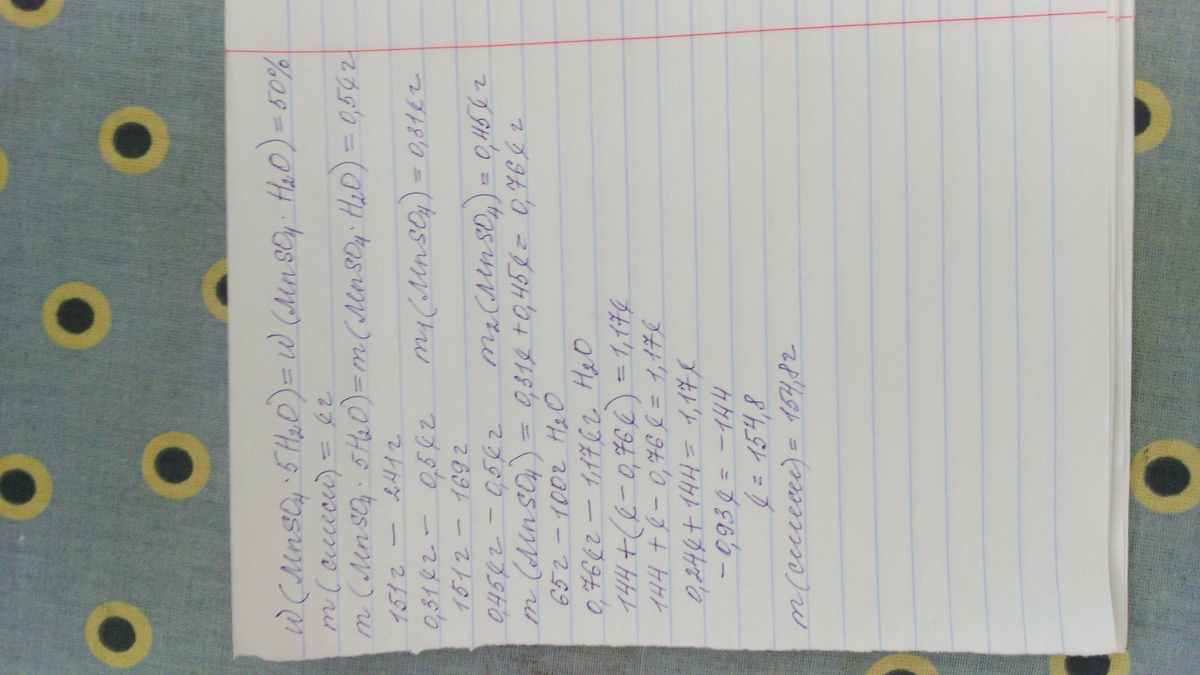 W(MnSO₄·5H₂O)=W(MnSO₄·H₂O)=50%
m(смеси)=ℓг
m(MnSO₄·5H₂O)=m(MnSO₄·H₂O)=0,5ℓг
151г – 241г
0,31ℓг – 0,5ℓг m₁(MnSO₄)=0,31ℓг
151г – 169г
0,45ℓг – 0,5ℓг m₂(MnSO₄)=0,45ℓг
m(MnSO₄)=0,31ℓ+0,45ℓ=0,76ℓг
65г – 100г H₂O
0,76ℓг – 1,17ℓг H₂O
144+(ℓ-0,76ℓ)=1,17ℓ
144+ℓ-0,76ℓ=1,17ℓ
0,24ℓ+144=1,17ℓ
-0,93ℓ=-144
ℓ=154,8
m(смеси)=154,8г